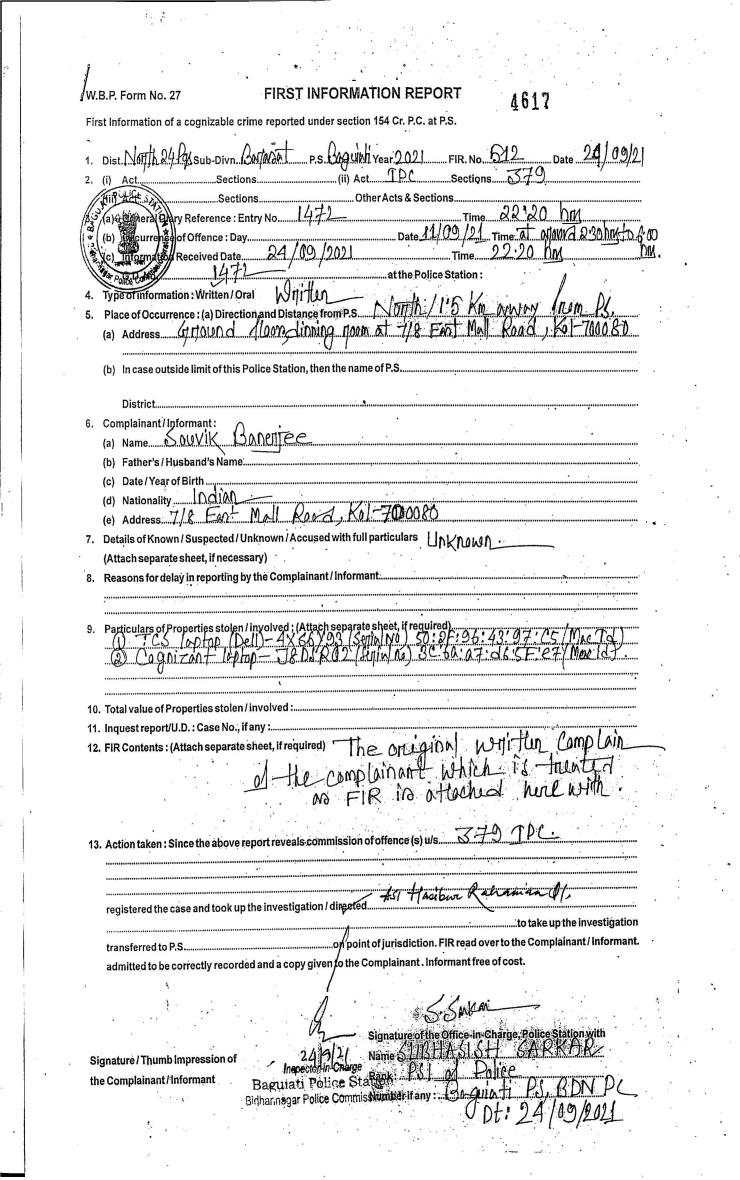 W.B.P. Form No. 27 FIRST INFORMATION REPORT 4617
First Information of a cognizable crime reported under section 154 Cr. P.C. at P.S.
1. Dist. North 24 Pgs Sub-Divn. Barasat P.S. Baguiati Year 2021 FIR. No. 612 Date 24/09/21
2. (i) Act Sections (ii) Act IPC Sections 379
Sections Other Acts & Sections
(a) General Diary Reference : Entry No. 1472 Time 22:20 hrs
(b) Occurrence of Offence : Day Date 11/09/21 Time at around 2:30 hrs to 6:00 hrs.
(c) Information Received Date 24/09/2021 Time 22:20 hrs
1472 at the Police Station :
4. Type of information : Written / Oral Written
5. Place of Occurrence : (a) Direction and Distance from P.S. North / 1.5 Km away from PS.
(a) Address Ground floor dinning room at 7/8 East Mall Road, Kol-700080
(b) In case outside limit of this Police Station, then the name of P.S.
District
6. Complainant / Informant :
(a) Name Souvik Banerjee
(b) Father's / Husband's Name
(c) Date / Year of Birth
(d) Nationality Indian
(e) Address 7/8 East Mall Road, Kol-700080
7. Details of Known / Suspected / Unknown / Accused with full particulars Unknown.
(Attach separate sheet, if necessary)
8. Reasons for delay in reporting by the Complainant / Informant
9. Particulars of Properties stolen / involved : (Attach separate sheet, if required)
① TCS laptop (Dell) - 4X56Y93 (Serial No) 50:2F:96:43:97:C5 (Mac Id)
② Cognizant laptop - (Serial no) 3C:6a:a7:d6:5F:e7 (Mac Id).
10. Total value of Properties stolen / involved :
11. Inquest report / U.D. : Case No., if any :
12. FIR Contents : (Attach separate sheet, if required) The original written complain
of the complainant which is treated
as FIR is attached here with.
13. Action taken : Since the above report reveals commission of offence (s) u/s 379 IPC.
registered the case and took up the investigation / directed ASI Hasibur Rahaman
to take up the investigation
transferred to P.S. on point of jurisdiction. FIR read over to the Complainant / Informant.
admitted to be correctly recorded and a copy given to the Complainant. Informant free of cost.
S. Sarkar
Signature of the Office-in-Charge, Police Station with
Signature / Thumb Impression of 24/9/21 Name SUBHASISH SARKAR
the Complainant / Informant Inspector-in-Charge Rank: PSI of Police
Baguiati Police Station Number if any : Baguiati PS, BDN PC
Bidhannagar Police Commis
Dt: 24/09/2021